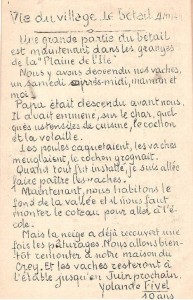 Vie du village. Le bétail
Une grande partie du bétail
est maintenant dans les granges
de la "Plaine de l'Ile"
Nous y avons descendu nos vaches,
un samedi après-midi, maman et
moi
Papa était descendu avant nous.
Il avait emmené, sur le char, quel-
ques ustensiles de cuisine, le cochon
et la volaille.
Les poules caquetaient, les vaches
meuglaient, le cochon grognait.
Quand tout fut installé, je suis allée
faire paître les vaches.
Maintenant, nous habitons le
fond de la vallée et il nous faut
monter le coteau pour aller à l'é-
cole.
Mais la neige a déjà recouvert une
fois les pâturages. Nous allons bien-
tôt remonter à notre maison du
Crey. Et les vaches resteront à
l'étable jusqu'en Juin prochain.
Yolande Fivel
10 ans